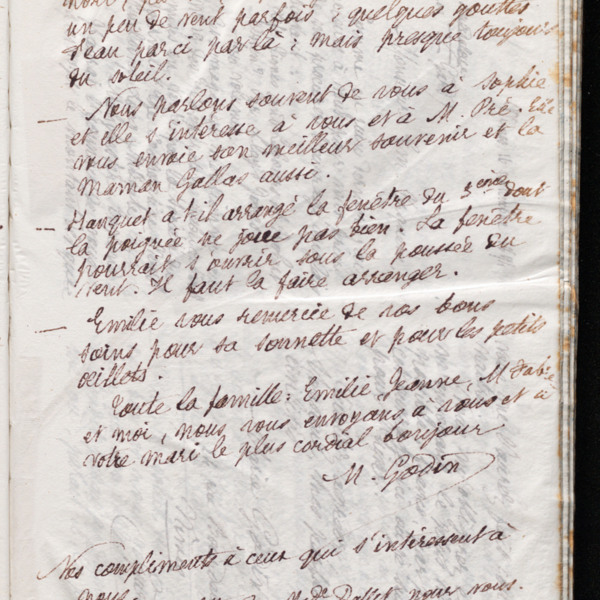 un peu de vent parfois ; quelques gouttes
d'eau parci par là ; mais presque toujours
du soleil.
— Nous parlons souvent de vous à Sophie
et elle s'intéresse à vous et à M. Pré. Elle
vous envoie son meilleur souvenir et la
maman Gallas aussi.
— Hanquet a t-il arrangé la fenêtre du 3eme dont
la poignée ne joue pas bien. La fenêtre
pourrait s'ouvrir sous la poussée du
vent. Il faut la faire arranger.
— Emilie vous remercie de vos bons
soins pour sa sonnette et pour les petits
œillets.
Toute la famille : Emilie, Jeanne, M. Fabre
et moi, nous vous envoyons à vous et à
votre mari le plus cordial bonjour
M. Godin
Nos compliments à ceux qui s'intéressent à
nous
pour vous.